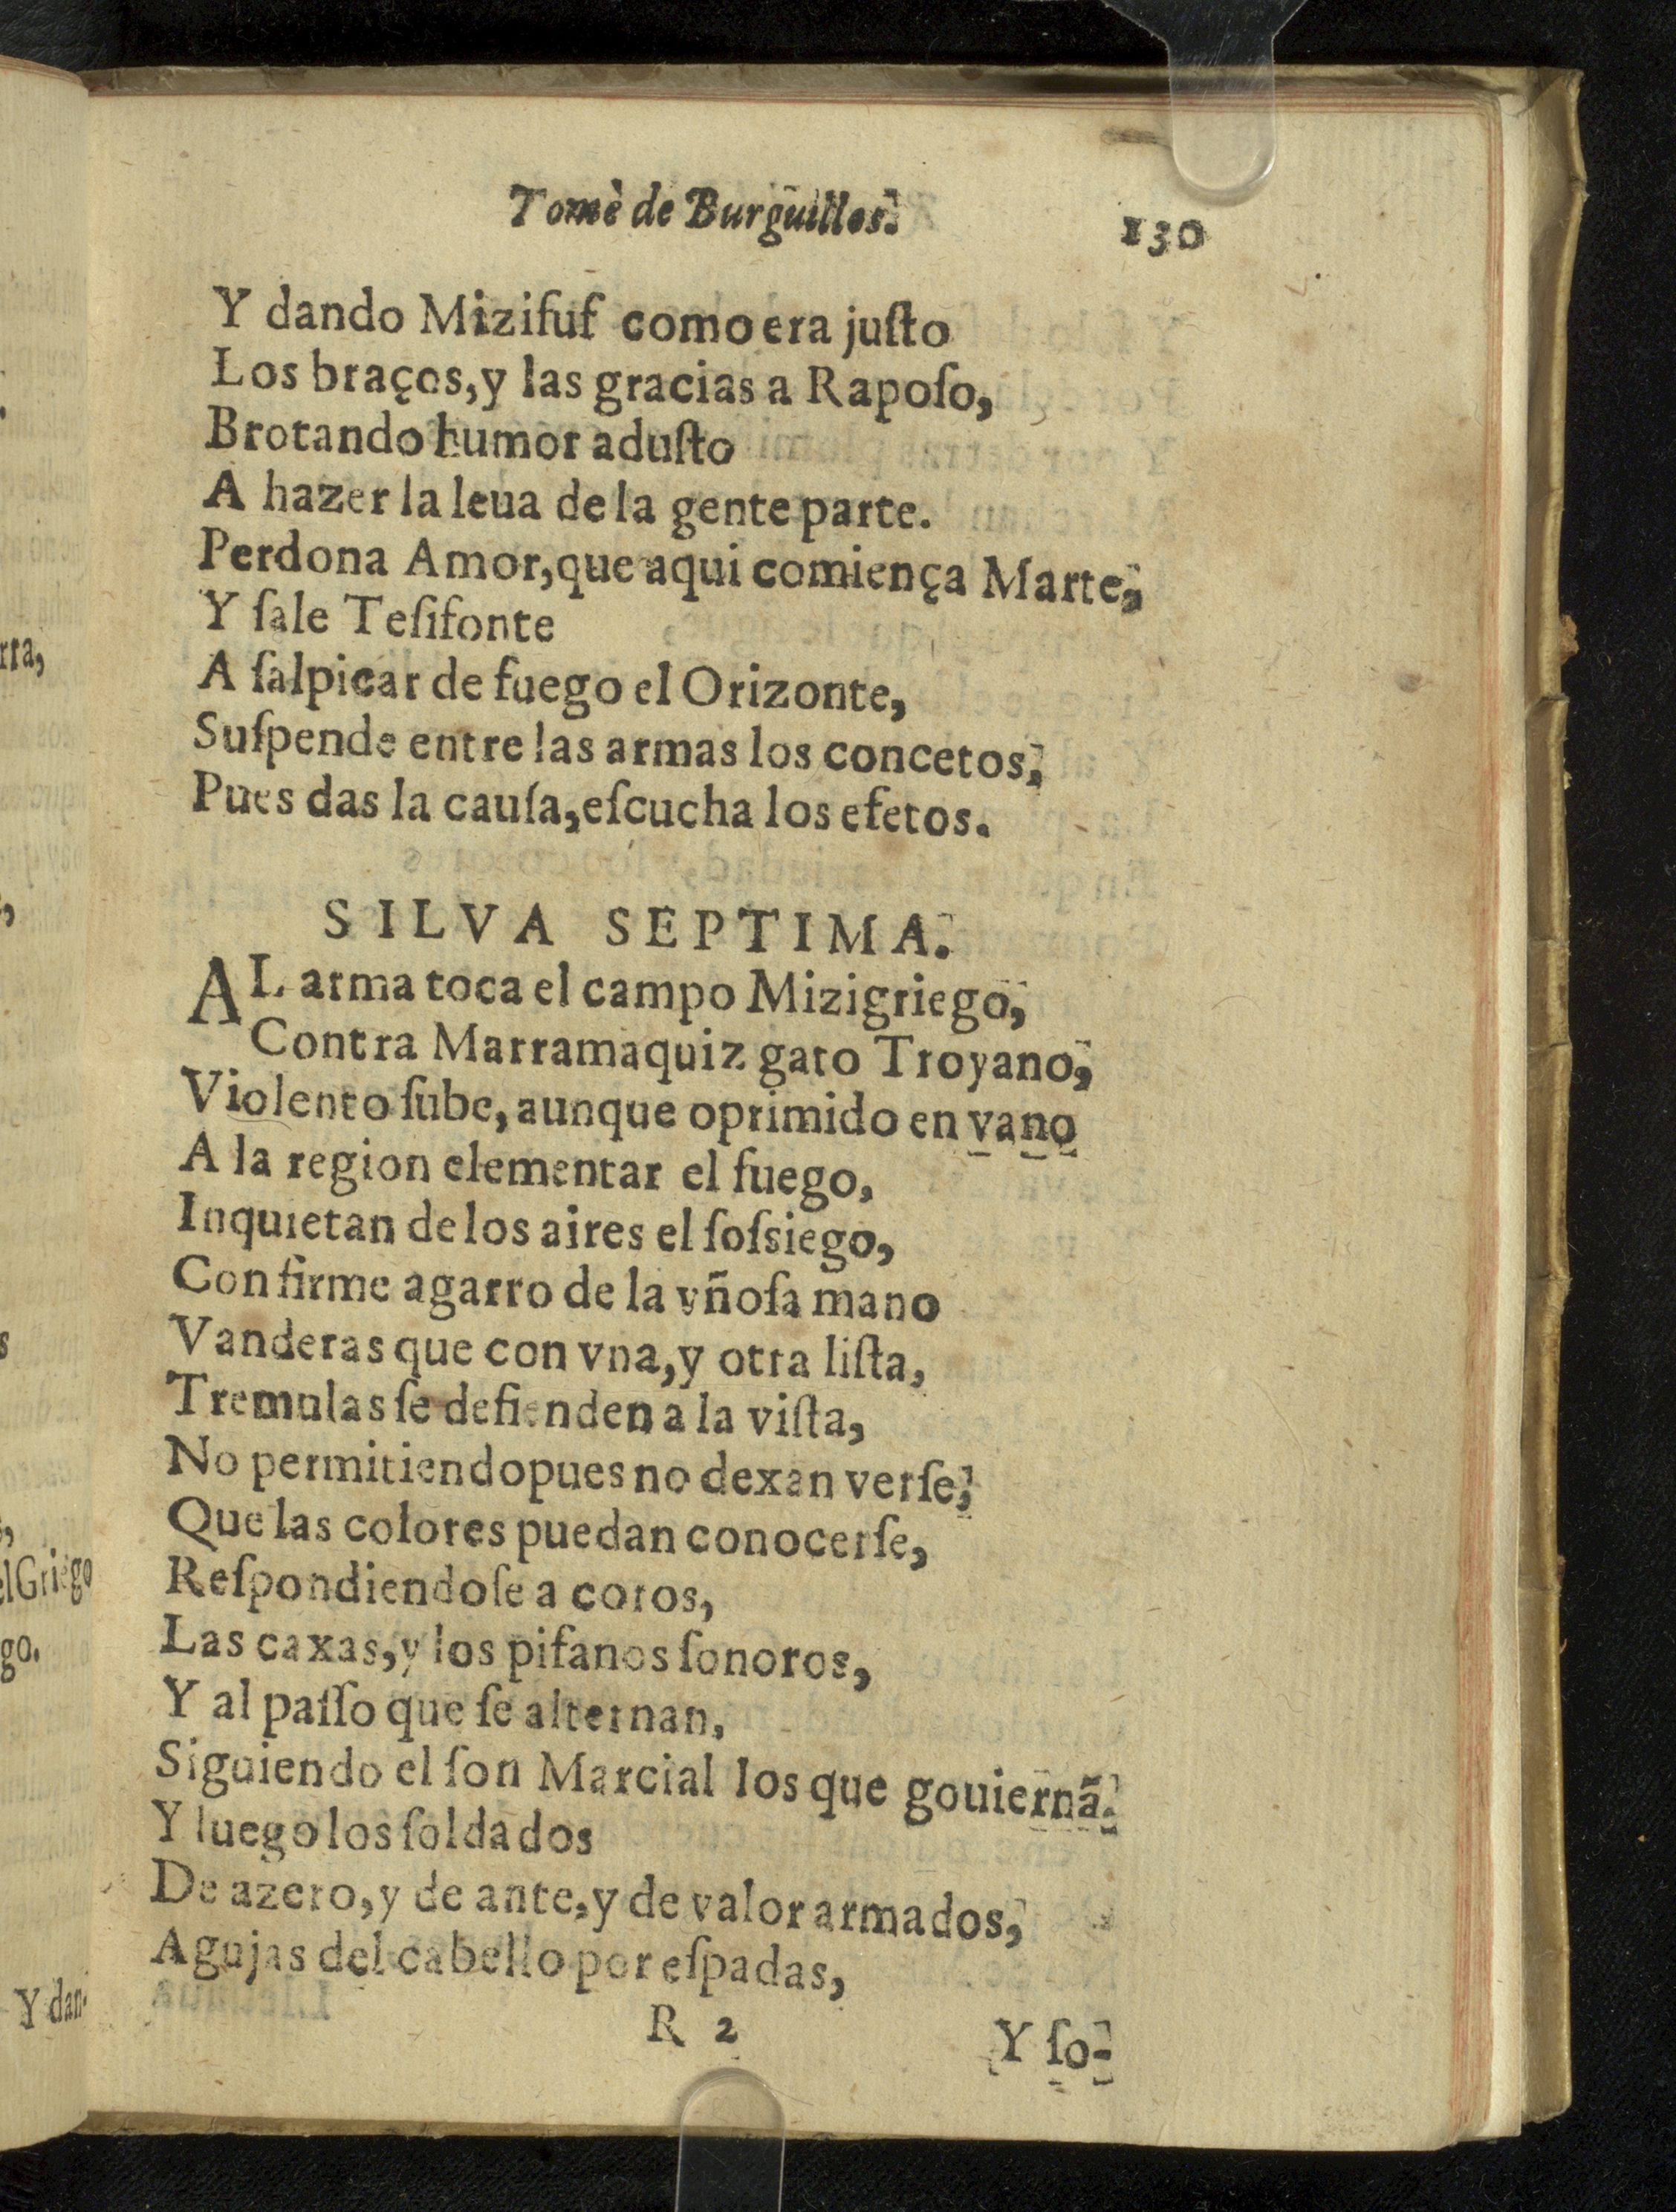 Tomè de Burguillos. 130
Y dando Mizifuf como era juſto
Los braços, y las gracias a Rapoſo,
Brotando humor aduſto
A hazer la leua de la gente parte.
Perdona Amor, que aqui comiença Marte,
Y ſale Teſifonte
A ſalpicar de fuego el Orizonte,
Suſpende entre las armas los concetos,
Pues das la cauſa, eſcucha los efetos.
SILVA SEPTIMA.
AL arma toca el campo Mizigriego,
Contra Marramaquiz gato Troyano,
Violento ſube, aunque oprimido en vano
A la region elementar el fuego,
Inquietan de los aires el ſoſsiego,
Con firme agarro de la vñoſa mano
Vanderas que con vna, y otra liſta,
Tremulas ſe defienden a la viſta,
No permitiendo pues no dexan verſe,
Que las colores puedan conocerſe,
Reſpondiendoſe a coros,
Las caxas, y los pifanos ſonoros,
Y al paſſo que ſe alternan,
Siguiendo el ſon Marcial los que gouiernã.
Y luego los ſoldados
De azero, y de ante, y de valor armados,
Agujas del cabello por eſpadas,
R 2 Y ſo-
rra,
el Griego
go.
Y dan-